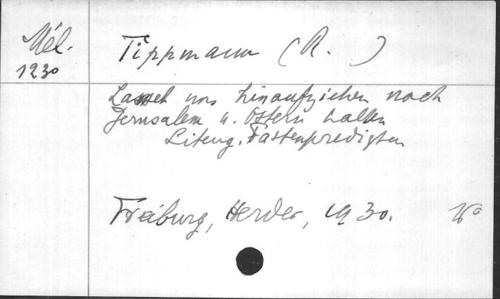 Mél.
1230
Tippmann (R. )
Lasset uns hinaufziehen nach
Jerusalem u. Ostern halten
Liturg. Fastenpredigten
Freiburg, Herder, 1930.